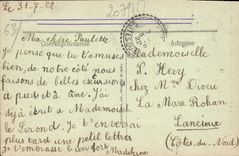 Le 31-7-22
20794
63
Ma chère Paulette
Correspondance
Adresse
Je pense que tu t'amuses
bien, de notre côté nous
faisons de belles excursions
à pied et à âne. J'ai
déjà écrit à Mademoiselle
le Serond. Je t'enverrai
plus tard une petite lettre
je t'embrasse bien fort
Madeleine
Mademoiselle
P. Hery
chez Mme Diveu
La Mare Rohan
Lancieux
(Côtes-du-Nord)